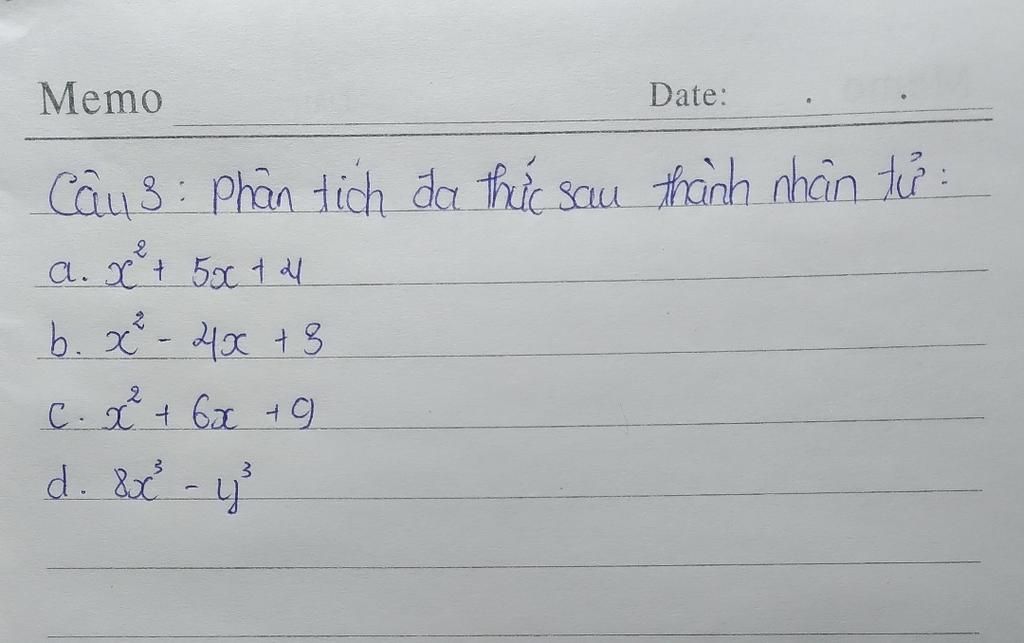 Memo Date: . .
Câu 3: Phân tích đa thức sau thành nhân tử:
a. x² + 5x + 4
b. x² - 4x + 3
c. x² + 6x + 9
d. 8x³ - y³